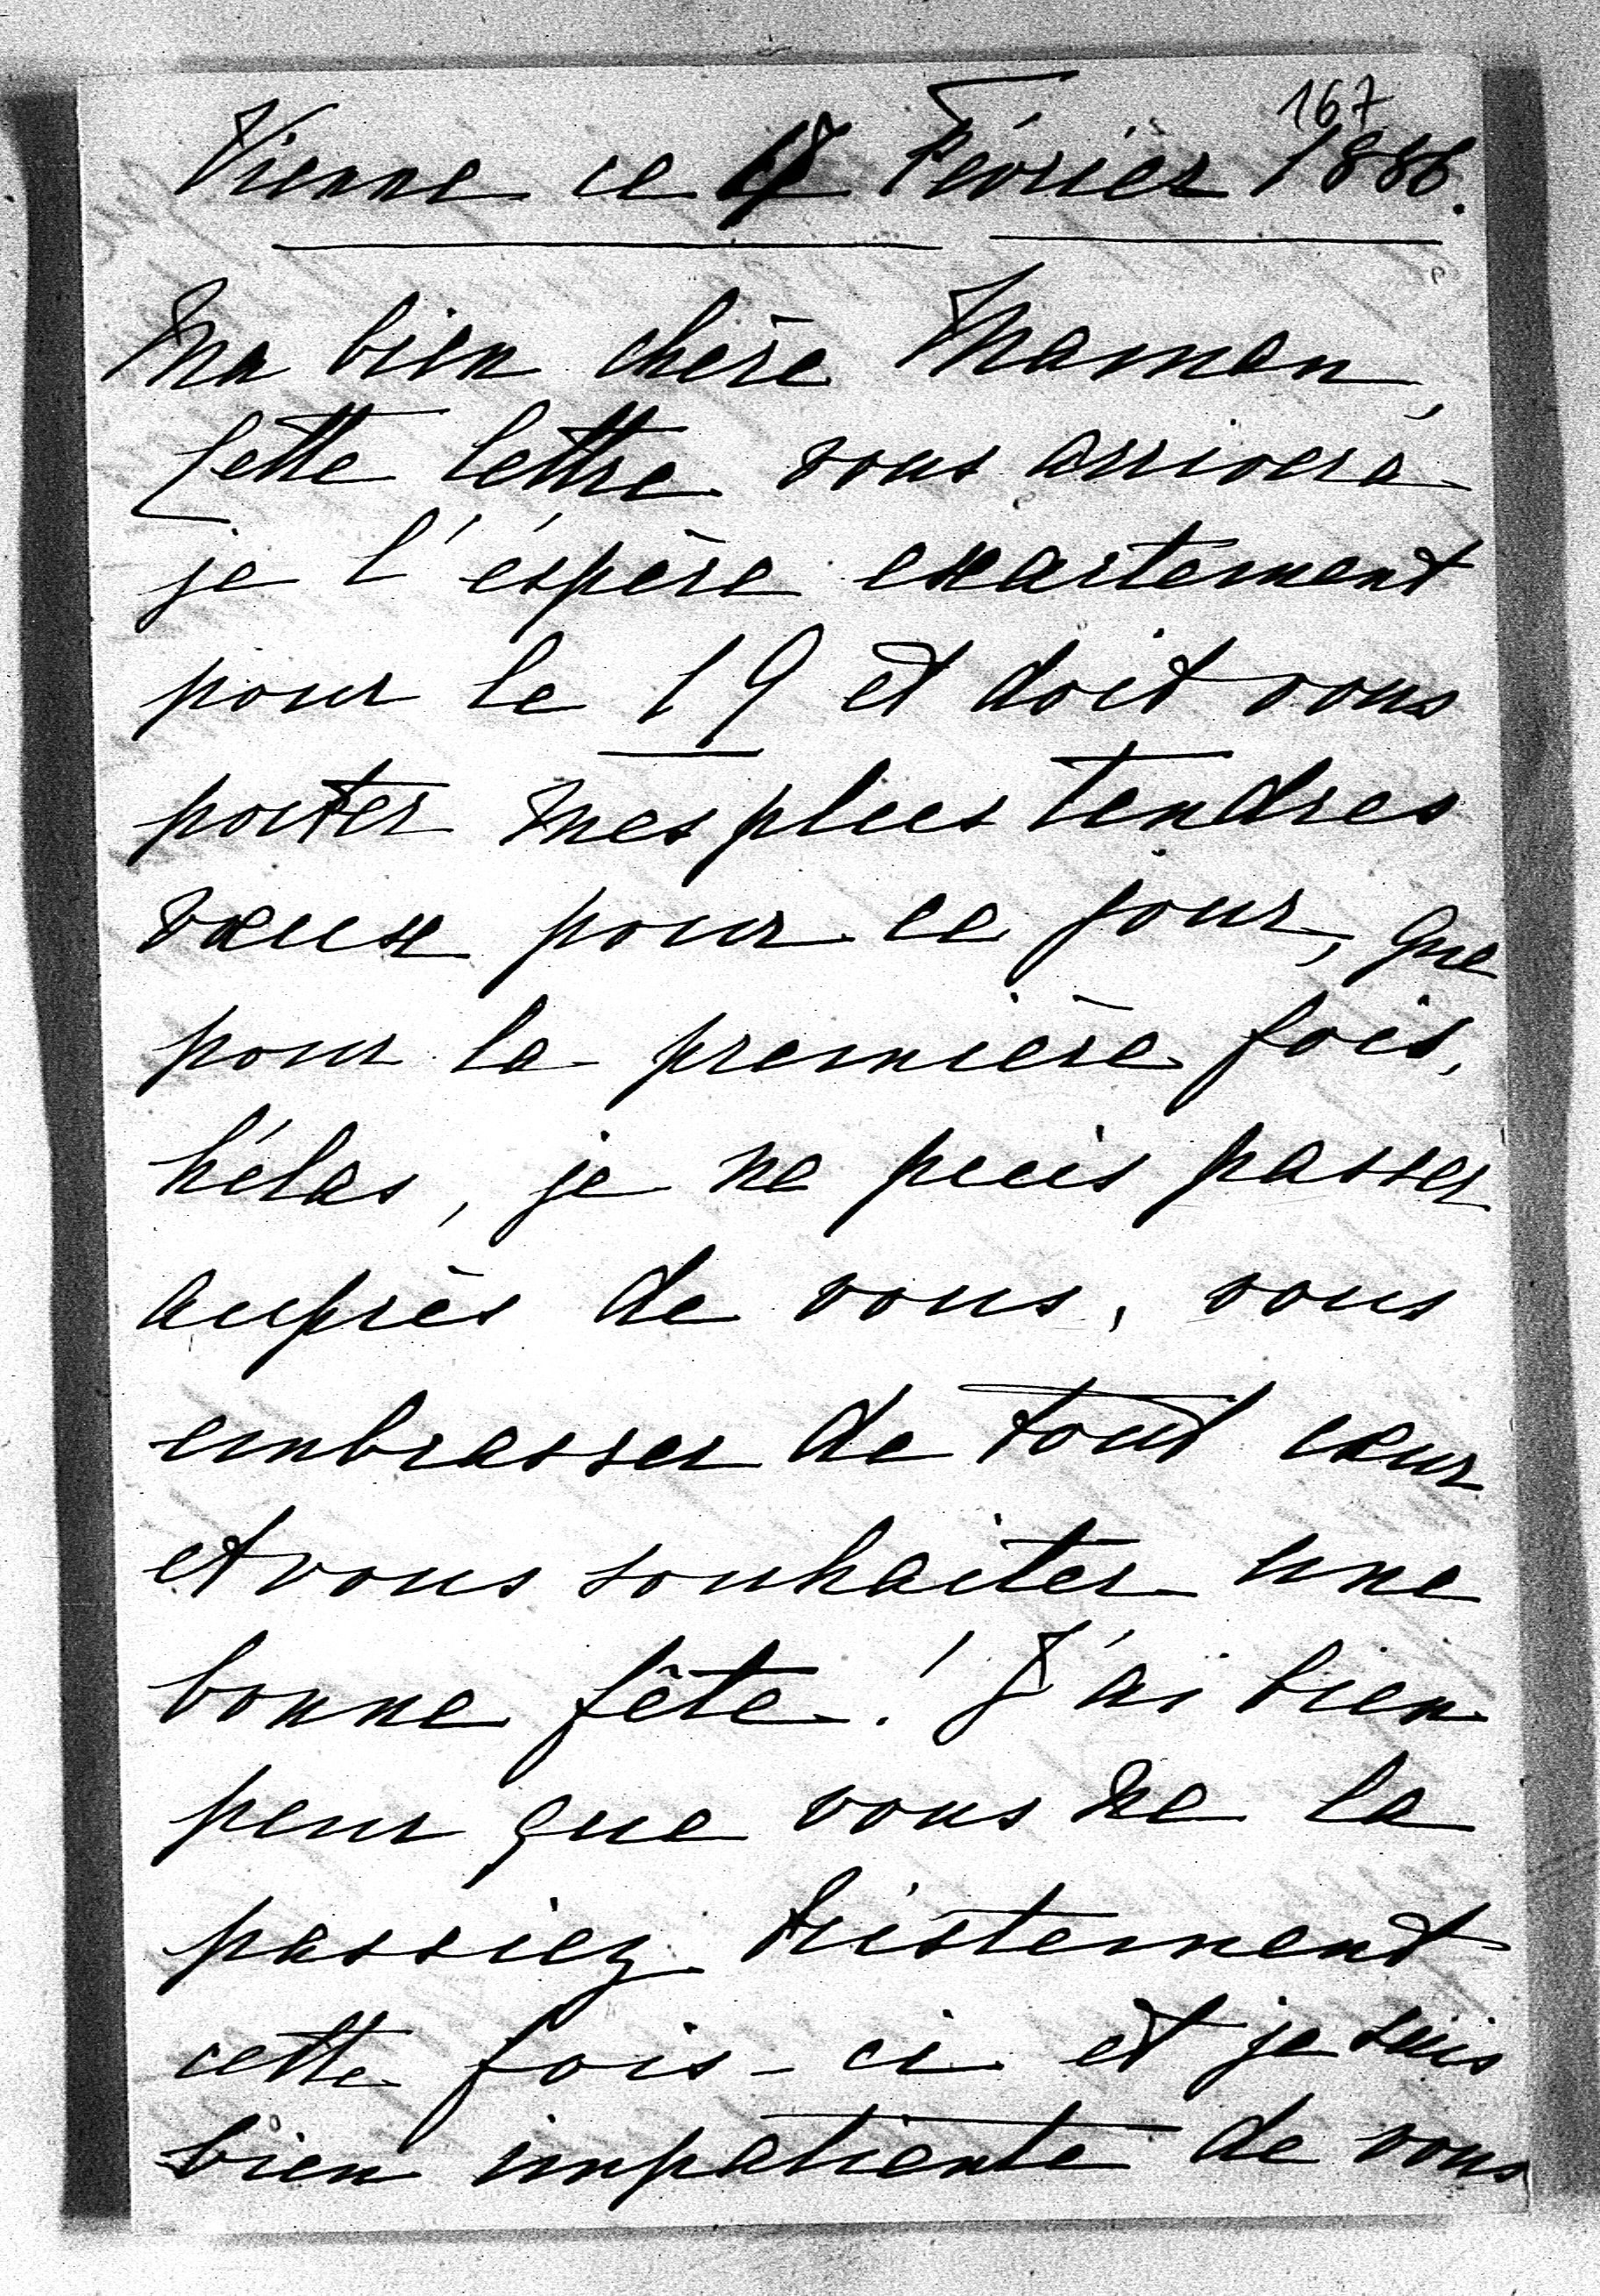 167
Vienne ce 17 Février 1886.
Ma bien chère Maman,
Cette lettre vous arrivera
je l'éspère exactement
pour le 19 et doit vous
porter mes plus tendres
vœux pour ce jour, que
pour la première fois,
hélas, je ne puis passer
auprès de vous, vous
embrasser de tout cœur
et vous souhaiter une
bonne fête! J'ai bien
peur que vous ne la
passiez tristement
cette fois-ci et je suis
bien impatiente de vous